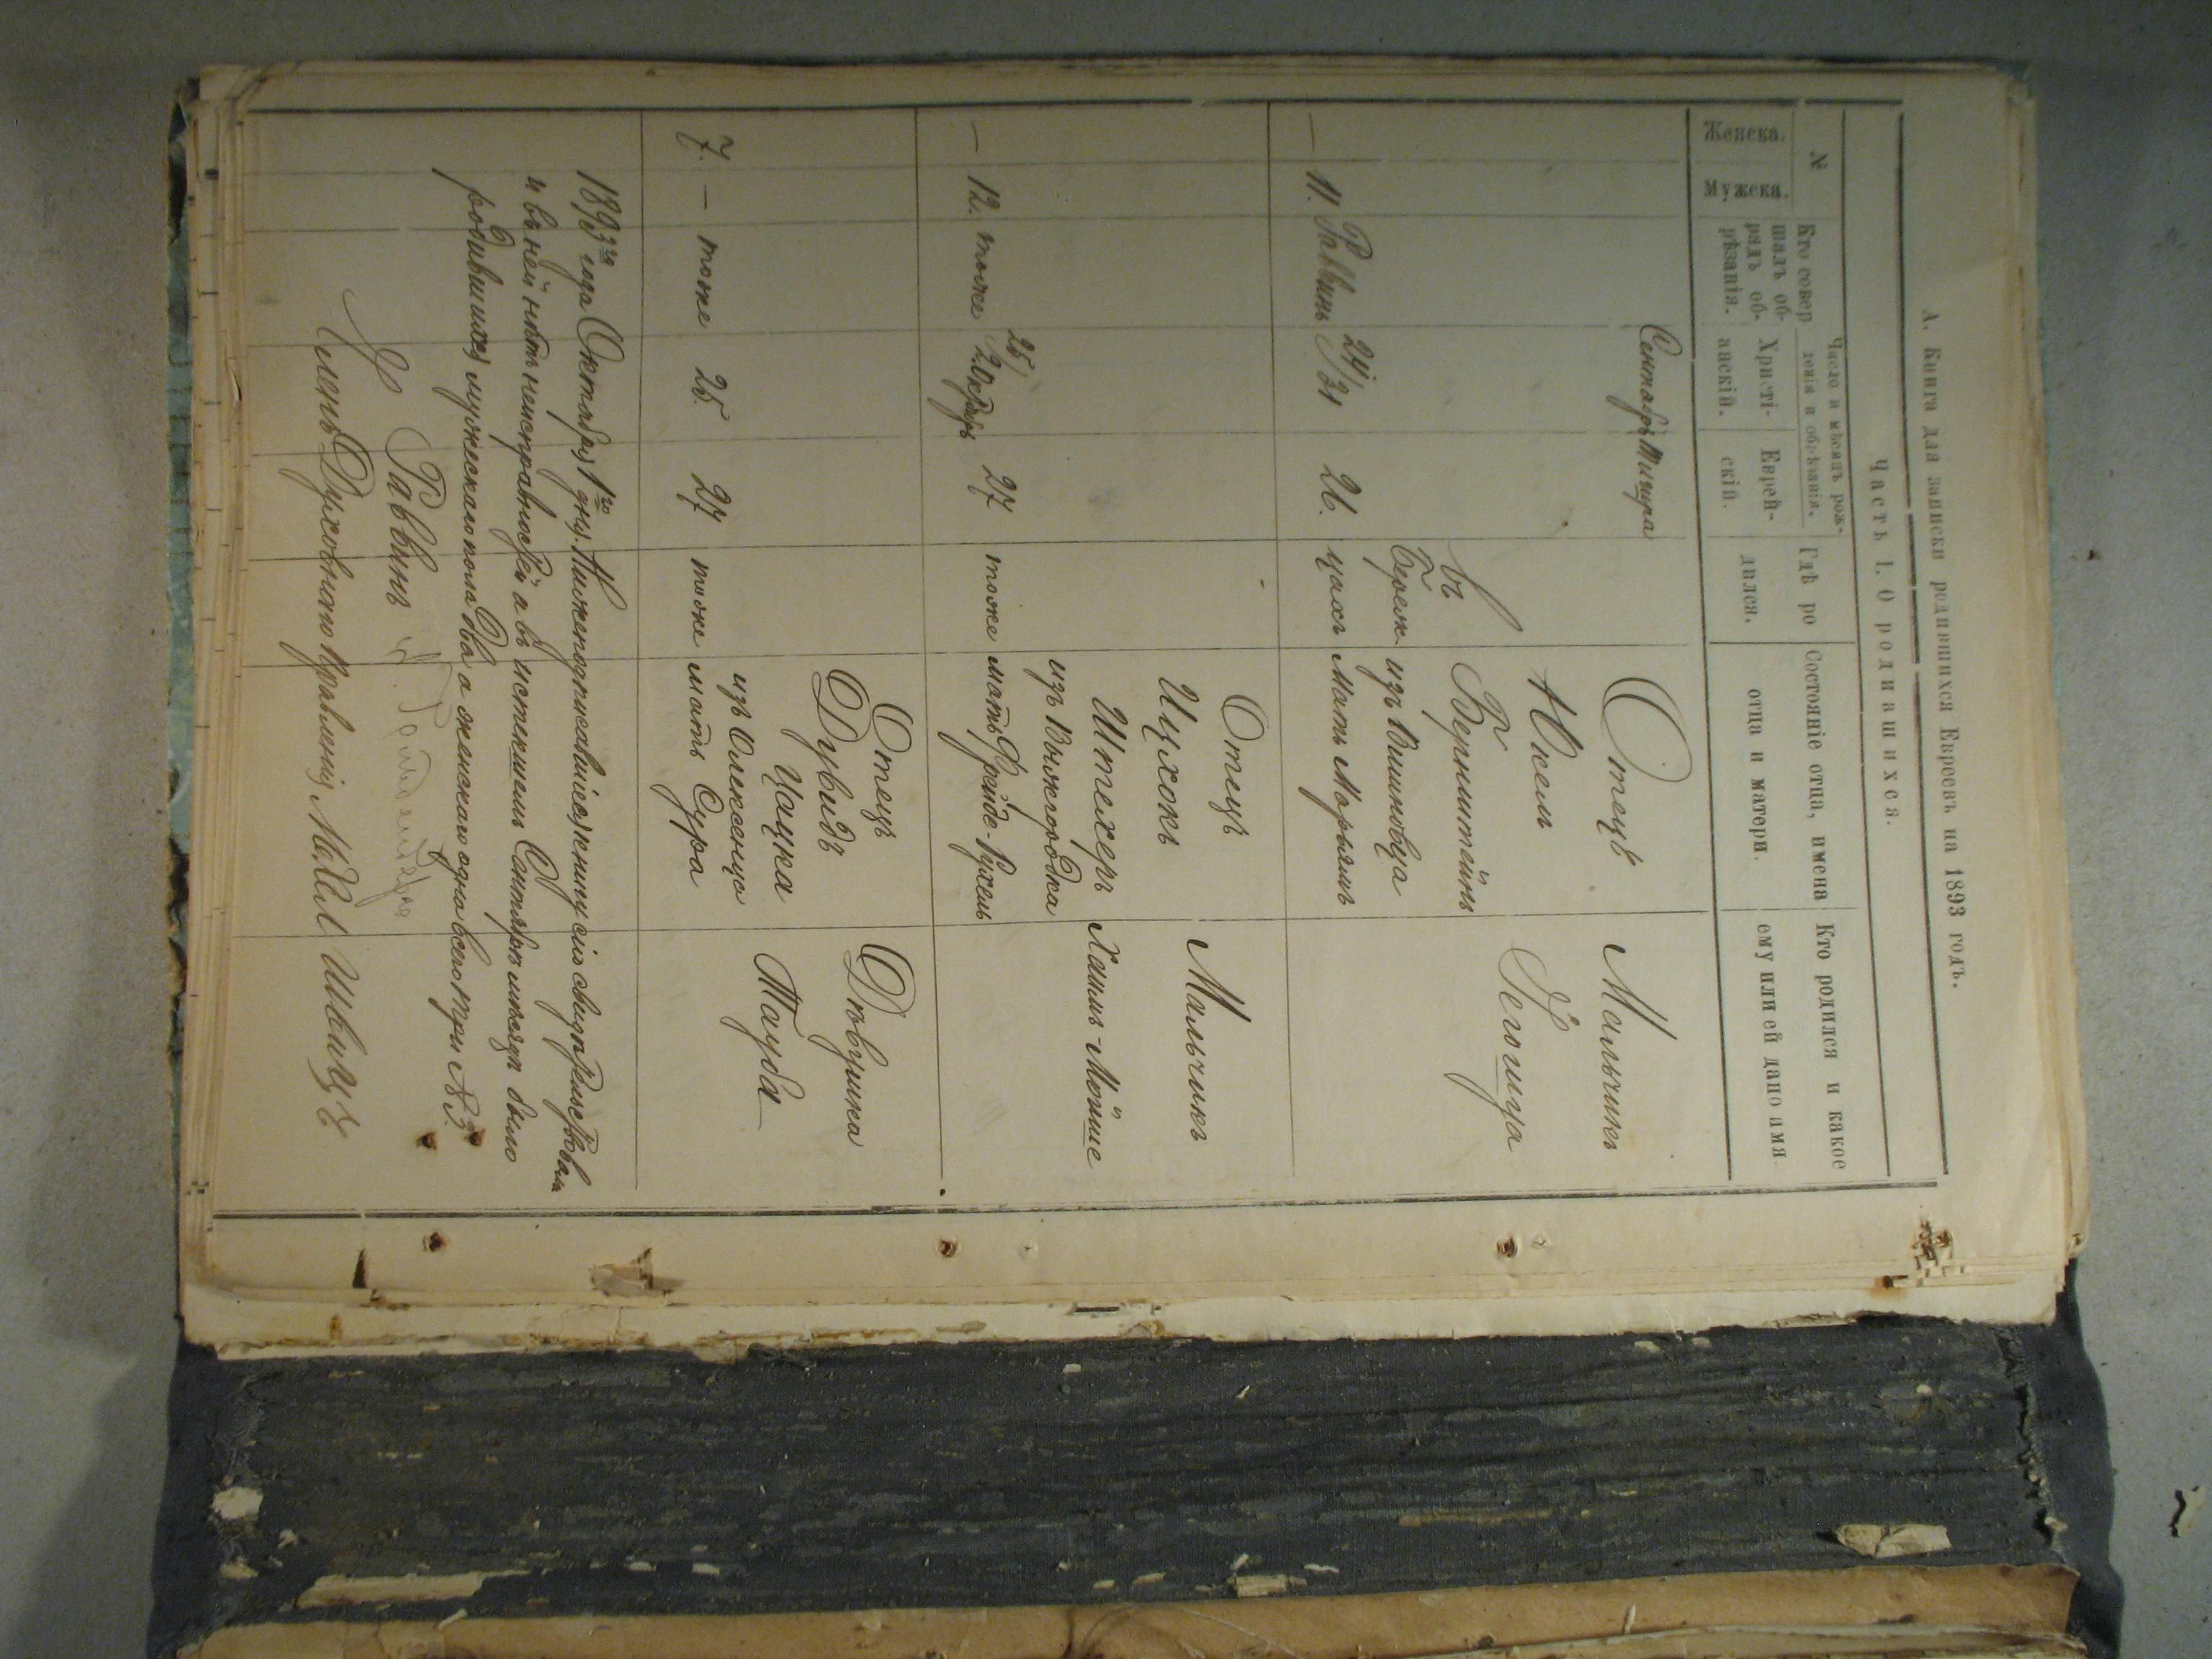 А. Книга для записки родившихся Евреевъ на 1893 годъ.
Часть I. О родившихся.
№
Женска.
Мужска.
Кто совер
шалъ об-
рядъ об-
рѣзанія.
Число и мѣсяцъ рож-
денія и обрѣзанія.
Христі-
анскій.
Еврей-
скій.
Гдѣ ро
дился.
Состояніе отца, имена
отца и матери.
Кто родился и какое
ему или ей дано имя
Сентябрь Тишра
— 11. Раввинъ 24/31 26.
въ
Береж
цахъ
Отецъ
Юкель
Бернштейнъ
изъ Вишновца
Мать Марьямъ
Мальчикъ
Гегошуа
— 12. тоже 25/2 Октябрь 27 тоже
Отецъ
Ицхокъ
Штехеръ
изъ Выжгородка
мать Фрейде-Рухель
Мальчикъ
Хаимъ-Мойше
7. — тоже 25. 27 тоже
Отецъ
Дувидъ
Цацка
изъ Олексенца
мать Сура
Дѣвушка
Тауба
1893го года Октября 1го дня. Нижеподписавшіеся книгу сію свидѣтельствовали
и въ ней нѣтъ неисправностей а въ истекшемъ Сентябрѣ мѣсяцѣ было
родившихся мужескаго пола два а женскаго одна всего три № 3.
Раввинъ
Членъ Духовнаго Правленія